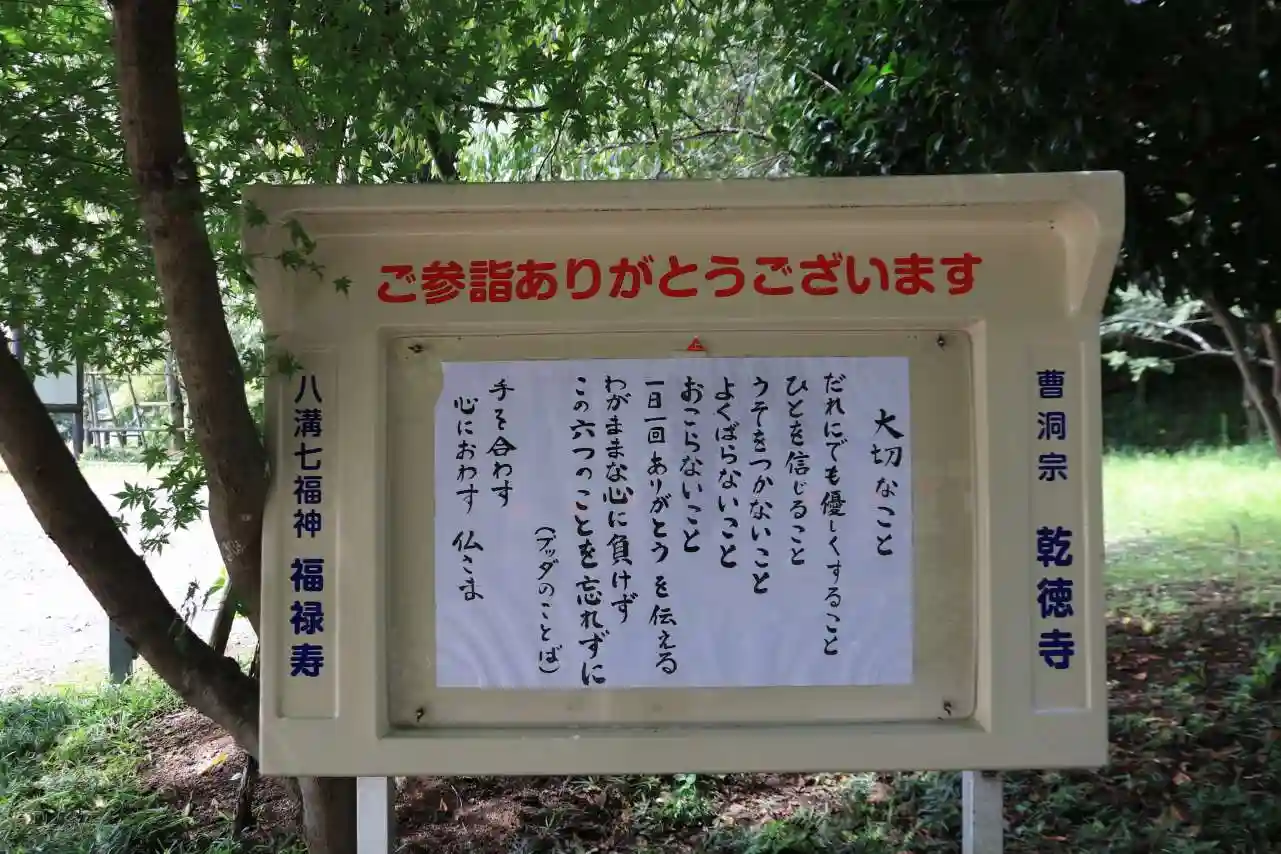 ご参詣ありがとうございます
上
曹洞宗 乾徳寺
大切なこと
だれにでも優しくすること
ひとを信じること
うそをつかないこと
よくばらないこと
おこらないこと
一日一回ありがとうを伝える
わがままな心に負けず
この六つのことを忘れずに
(ブッダのことば)
手を合わす
心におわす 仏さま
八溝七福神 福禄寿